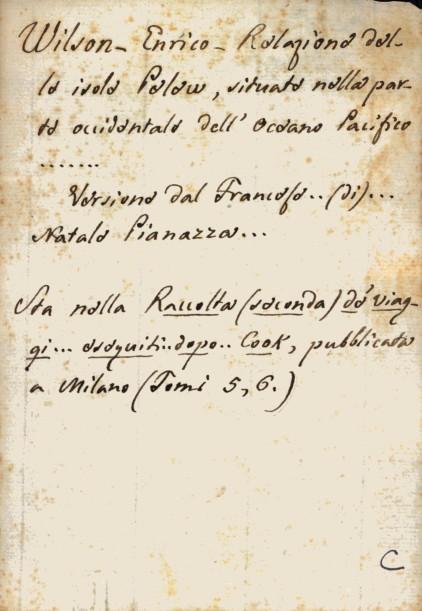 Wilson - Enrico - Relazione del-
le isole Pelew, situate nella par-
te occidentale dell' Oceano Pacifico
.......
Versione dal Francese.. (di)...
Natale Pianazza...
Sta nella Raccolta (seconda) de' viag-
gi... eseguiti.. dopo.. Cook, pubblicata
a Milano (Tomi 5, 6.)
C